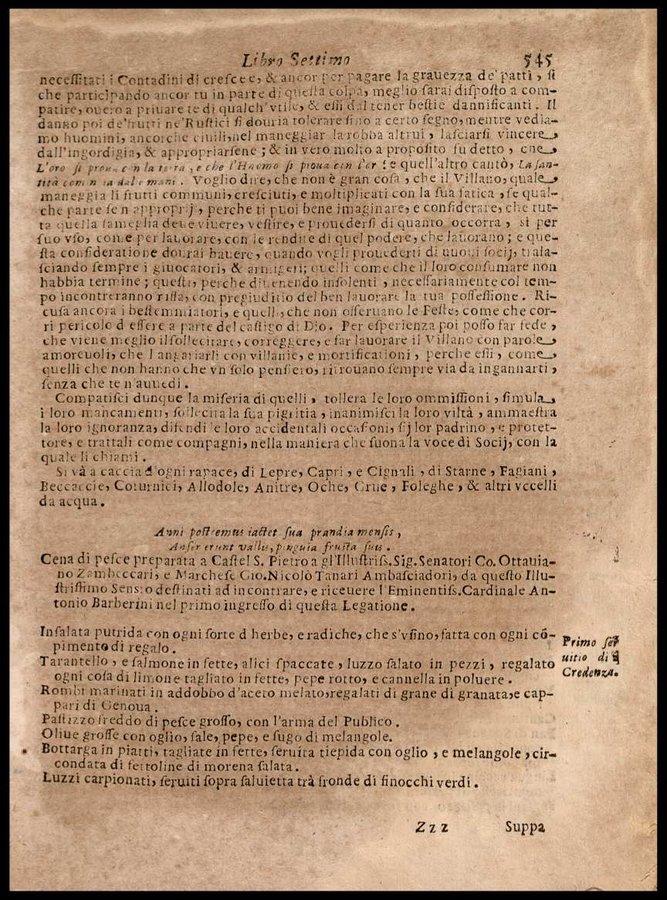 Libro Settimo 545
necessitati i Contadini di crescere, & ancor per pagare la grauezza de' patti, si
che participando ancor tu in parte di questa colpa, meglio sarai disposto a com-
patire, ouero a priuare te di qualch' vtile, & essi dal tener bestie dannificanti. Il
danno poi de' frutti ne' Rustici si douria tolerare sino a certo segno, mentre vedia-
mo huomini, ancorche ciuili, nel maneggiar la robba altrui, lasciarsi vincere
dall'ingordigia, & appropriarsene; & in vero molto a proposito fu detto, che
L'oro si proua con la terra, e che l'Huomo si proua con l'or: e quell'altro cantò, La san-
tità comincia dalle mani. Voglio dire, che non è gran cosa, che il Villano, quale
maneggia li frutti communi, cresciuti, e moltiplicati con la sua fatica, se qual-
che parte se n'approprij, perche ti puoi bene imaginare, e considerare, che tut-
ta quella fameglia deue viuere, vestire, e prouedersi di quanto occorra, sì per
suo vso, come per lauorare, con le rendite di quel podere, che lauorano; e que-
sta consideratione dourai hauere, quando vogli prouederti di nuoui socij, trala-
sciando sempre i giuocatori, & armigeri; quelli come che il loro consumare non
habbia termine; questi, perche diuenendo insolenti, necessariamente col tem-
po incontreranno rissa, con pregiuditio del ben lauorare la tua possessione. Ri-
cusa ancora i bestemmiatori, e quelli, che non osseruano le Feste, come che cor-
ri pericolo d'essere a parte del castigo di Dio. Per esperienza poi posso far fede,
che viene meglio il sollecitare, correggere, e far lauorare il Villano con parole
amoreuoli, che l'angariarli con villanie, e mortificationi, perche essi, come
quelli che non hanno che vn solo pensiero, ritrouano sempre via da ingannarti,
senza che te n'auuedi.
Compatisci dunque la miseria di quelli, tollera le loro ommissioni, simula
i loro mancamenti, sollecita la sua pigritia, inanimisci la loro viltà, ammaestra
la loro ignoranza, difendi le loro accidentali occasioni, sij lor padrino, e protet-
tore, e trattali come compagni, nella maniera che suona la voce di Socij, con la
quale li chiami.
Si và a caccia d'ogni rapace, di Lepre, Capri, e Cignali, di Starne, Fagiani,
Beccaccie, Coturnici, Allodole, Anitre, Oche, Grue, Foleghe, & altri vccelli
da acqua.
Anni postremus iactet sua prandia mensis,
Anser erunt vallis, pinguia frusta suis.
Cena di pesce preparata a Castel S. Pietro a gl'Illustriss. Sig. Senatori Co. Ottauia-
no Zambeccari, e Marchese Gio. Nicolò Tanari Ambasciadori, da questo Illu-
strissimo Senato destinati ad incontrare, e riceuere l'Eminentiss. Cardinale An-
tonio Barberini nel primo ingresso di questa Legatione.
Insalata putrida con ogni sorte d'herbe, e radiche, che s'vsino, fatta con ogni cõ-
pimento di regalo.
Primo ser
uitio di
Credenza.
Tarantello, e salmone in fette, alici spaccate, luzzo salato in pezzi, regalato
ogni cosa di limone tagliato in fette, pepe rotto, e cannella in poluere.
Rombi marinati in addobbo d'aceto melato, regalati di grane di granata, e cap-
pari di Genoua.
Pastizzo freddo di pesce grosso, con l'arma del Publico.
Oliue grosse con oglio, sale, pepe, e sugo di melangole.
Bottarga in piatti, tagliate in fette, seruita tiepida con oglio, e melangole, cir-
condata di fettoline di morena salata.
Luzzi carpionati, seruiti sopra saluietta trà fronde di finocchi verdi.
Zzz Suppa